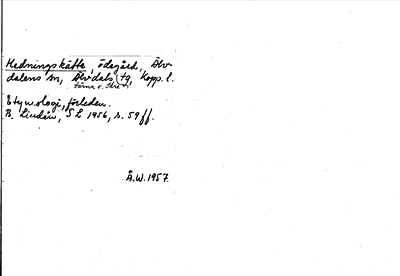 Hedningskätte, ödegård, Älv-
dalens sn, Älvdals tg, Kopp. l.
Särna o. Idre
Etymologi, förleden.
B. Lindén, SL 1956, s. 59 ff.
Å.W. 1957.